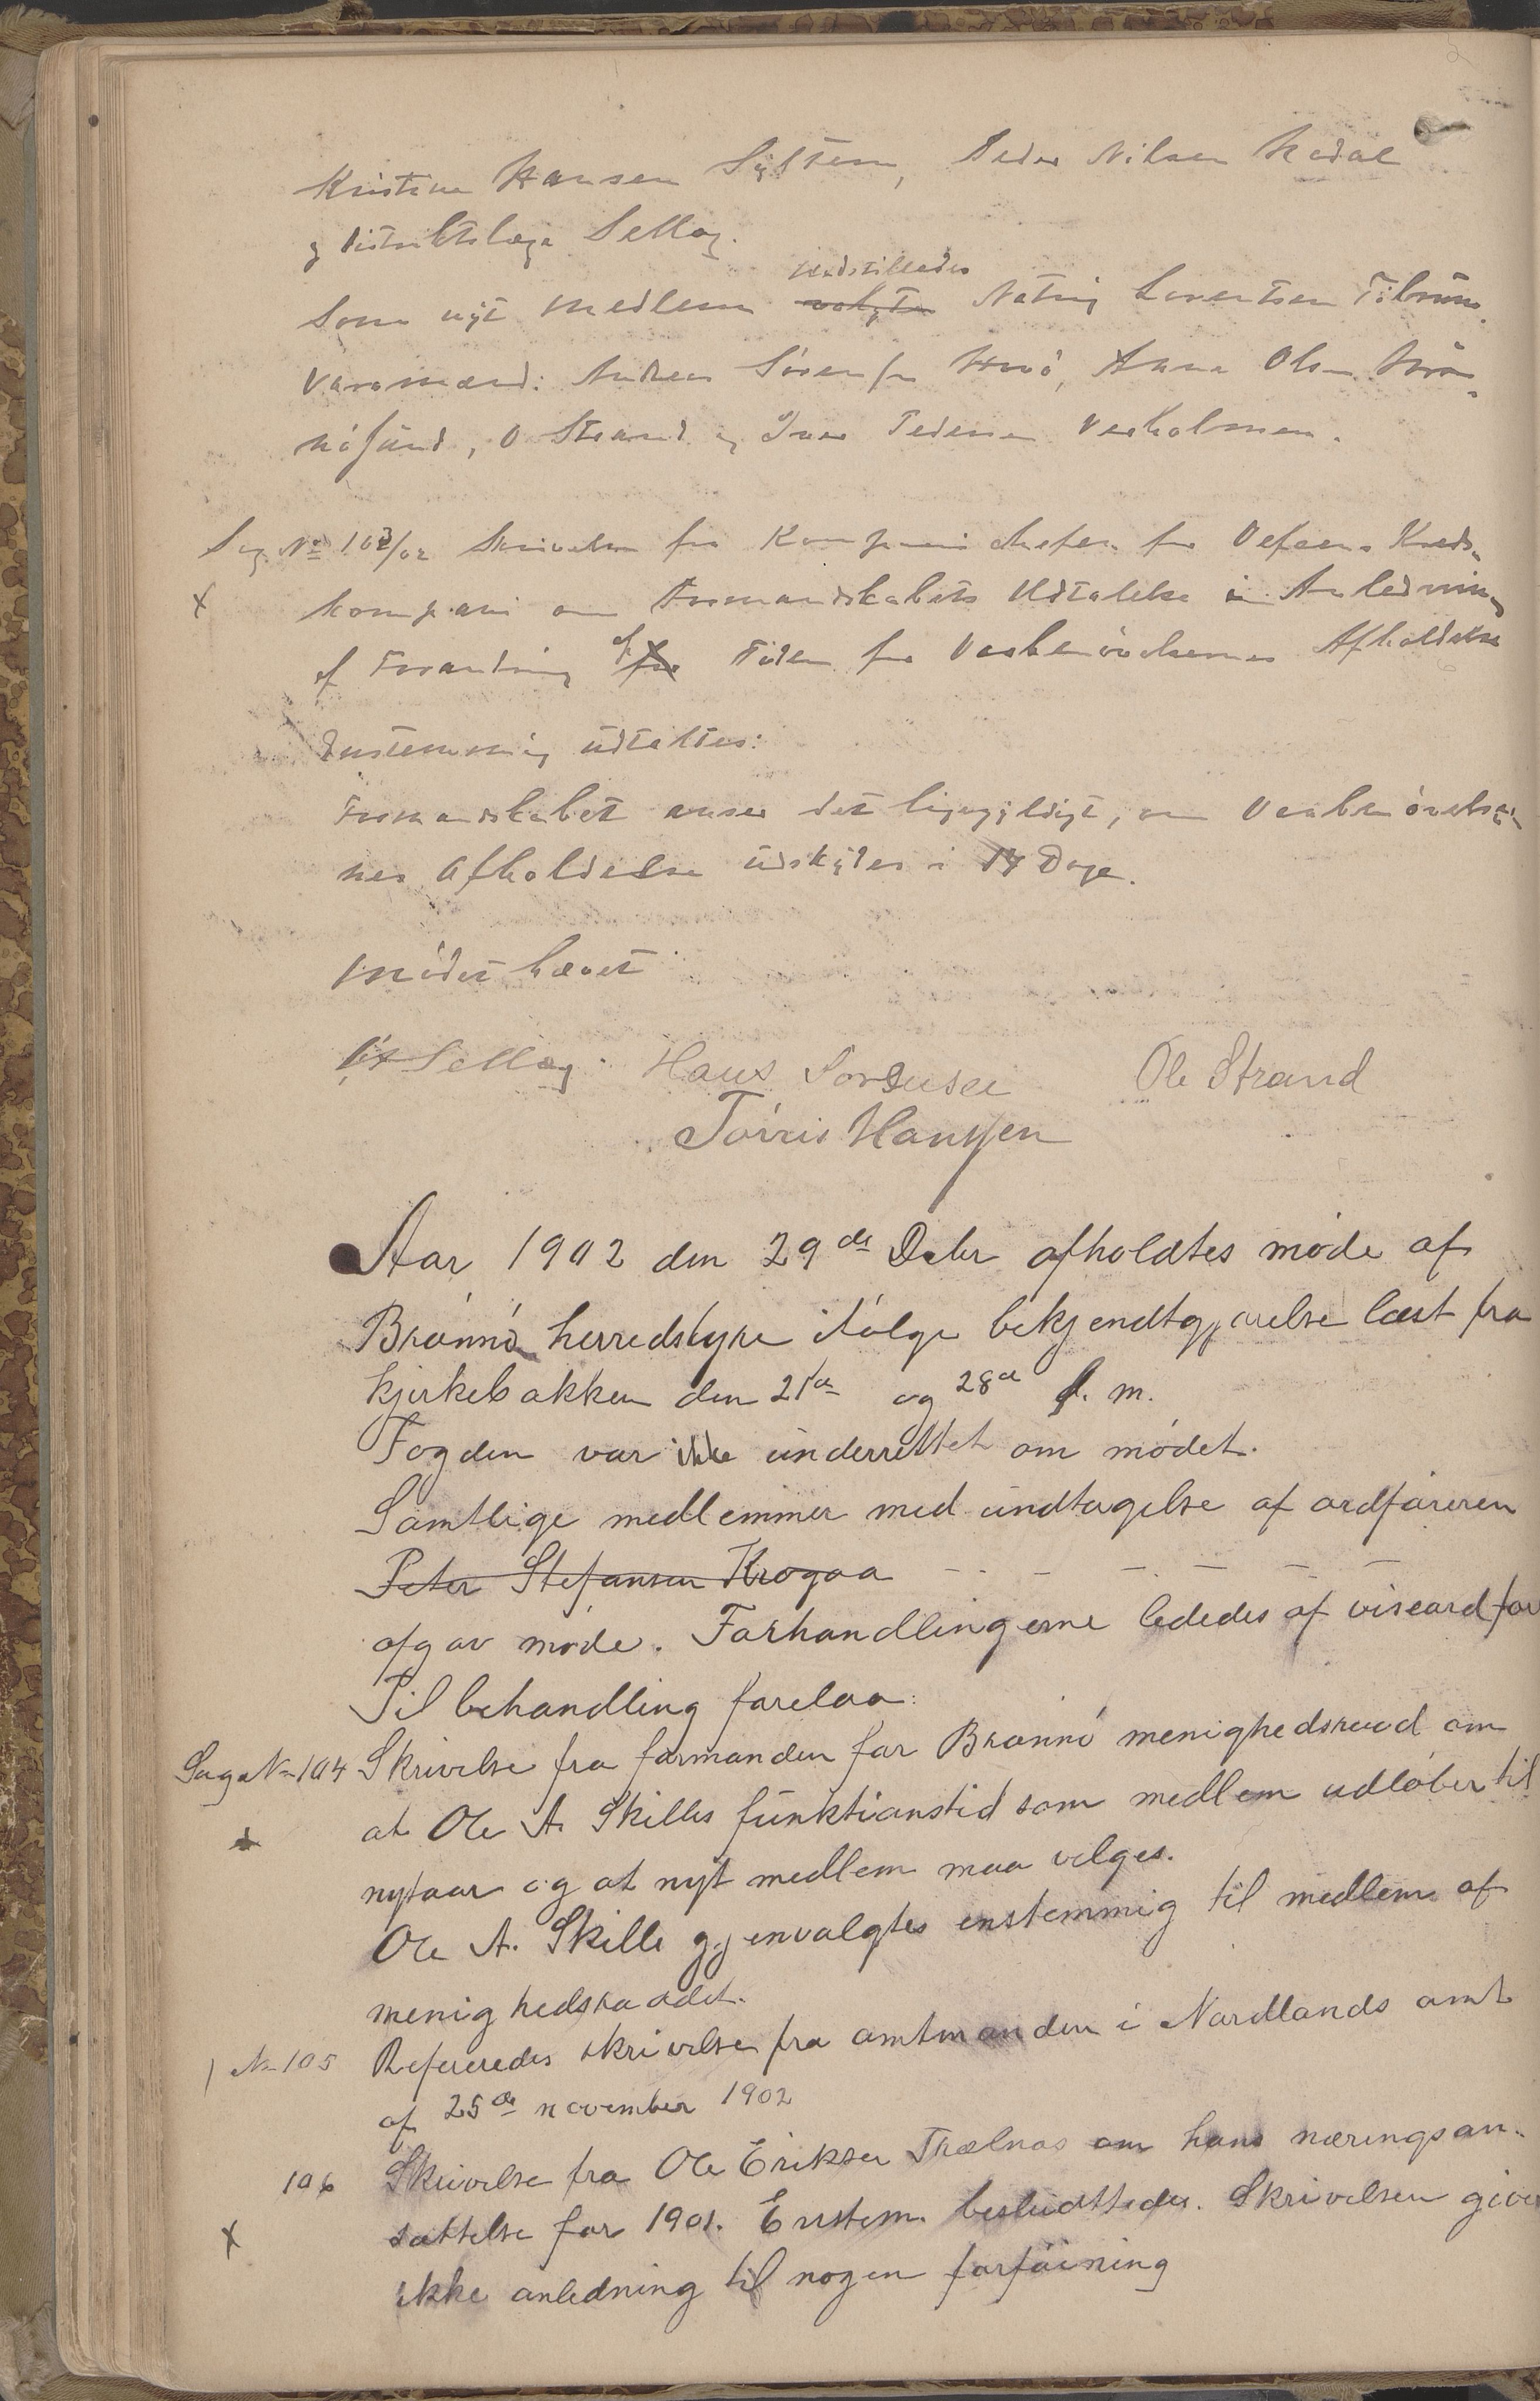 Kristine Hansen Sylten, Peder Nilsen Hedal
og Distriktslæge Selläg.
indstilledes
Som nyt medlem valgtes Lorentsen Tilrum.
Varamænd: Andreas Sørensen Anna Olsen Brøn-
nøsund, O Strand og Iver Pedersen Vedholmen.
Sag No 103/02 Skrivelse fra Kompanichefen for Vefsens Kreds-
X kompani om Formandskabets Udtalelse i Anledning
af
af Forandring for Tiden for Vaabenøvelsernes Afholdelse
Enstemmig udtaltes:
Formandskabet anser det ligegyldigt, om Vaabenøvelser-
nes Afholdelse udskydes i 14 Dage.
Mødet hævet
Selläg. Hans Sørensen Ole Strand
Tørris Hanssen
Aar 1902 den 29de Decbr afholdtes møde af
Brønnø herredstyre ifølge bekjendtgjørelse læst fra
kjirkebakken den 21de og 28de d. m.
Fogden var ikke underrettet om mødet.
Samtlige medlemmer med undtagelse af ordføreren
Peter Stefansen Krogaa - - - - - -
afgav møde. Forhandlingerne lededes af viseordfør
Til behandling forelaa:
Sag No 104 Skrivelse fra formanden for Brønnø menighedsraad om
at Ole A. Skilles funktionstid som medlem udløber til
nytaar og at nyt medlem maa velges.
Ole A. Skille gjenvalgtes enstemmig til medlem af
menighedsraadet.
No 105 Refereredes skrivelse fra amtmanden i Nordlands amt
af 25de november 1902
106 Skrivelse fra Ole Eriksen Trælnes om hans næringsan-
X sættelse for 1901. Enstem. besluttedes. Skrivelsen giver
ikke anledning til nogen forføining